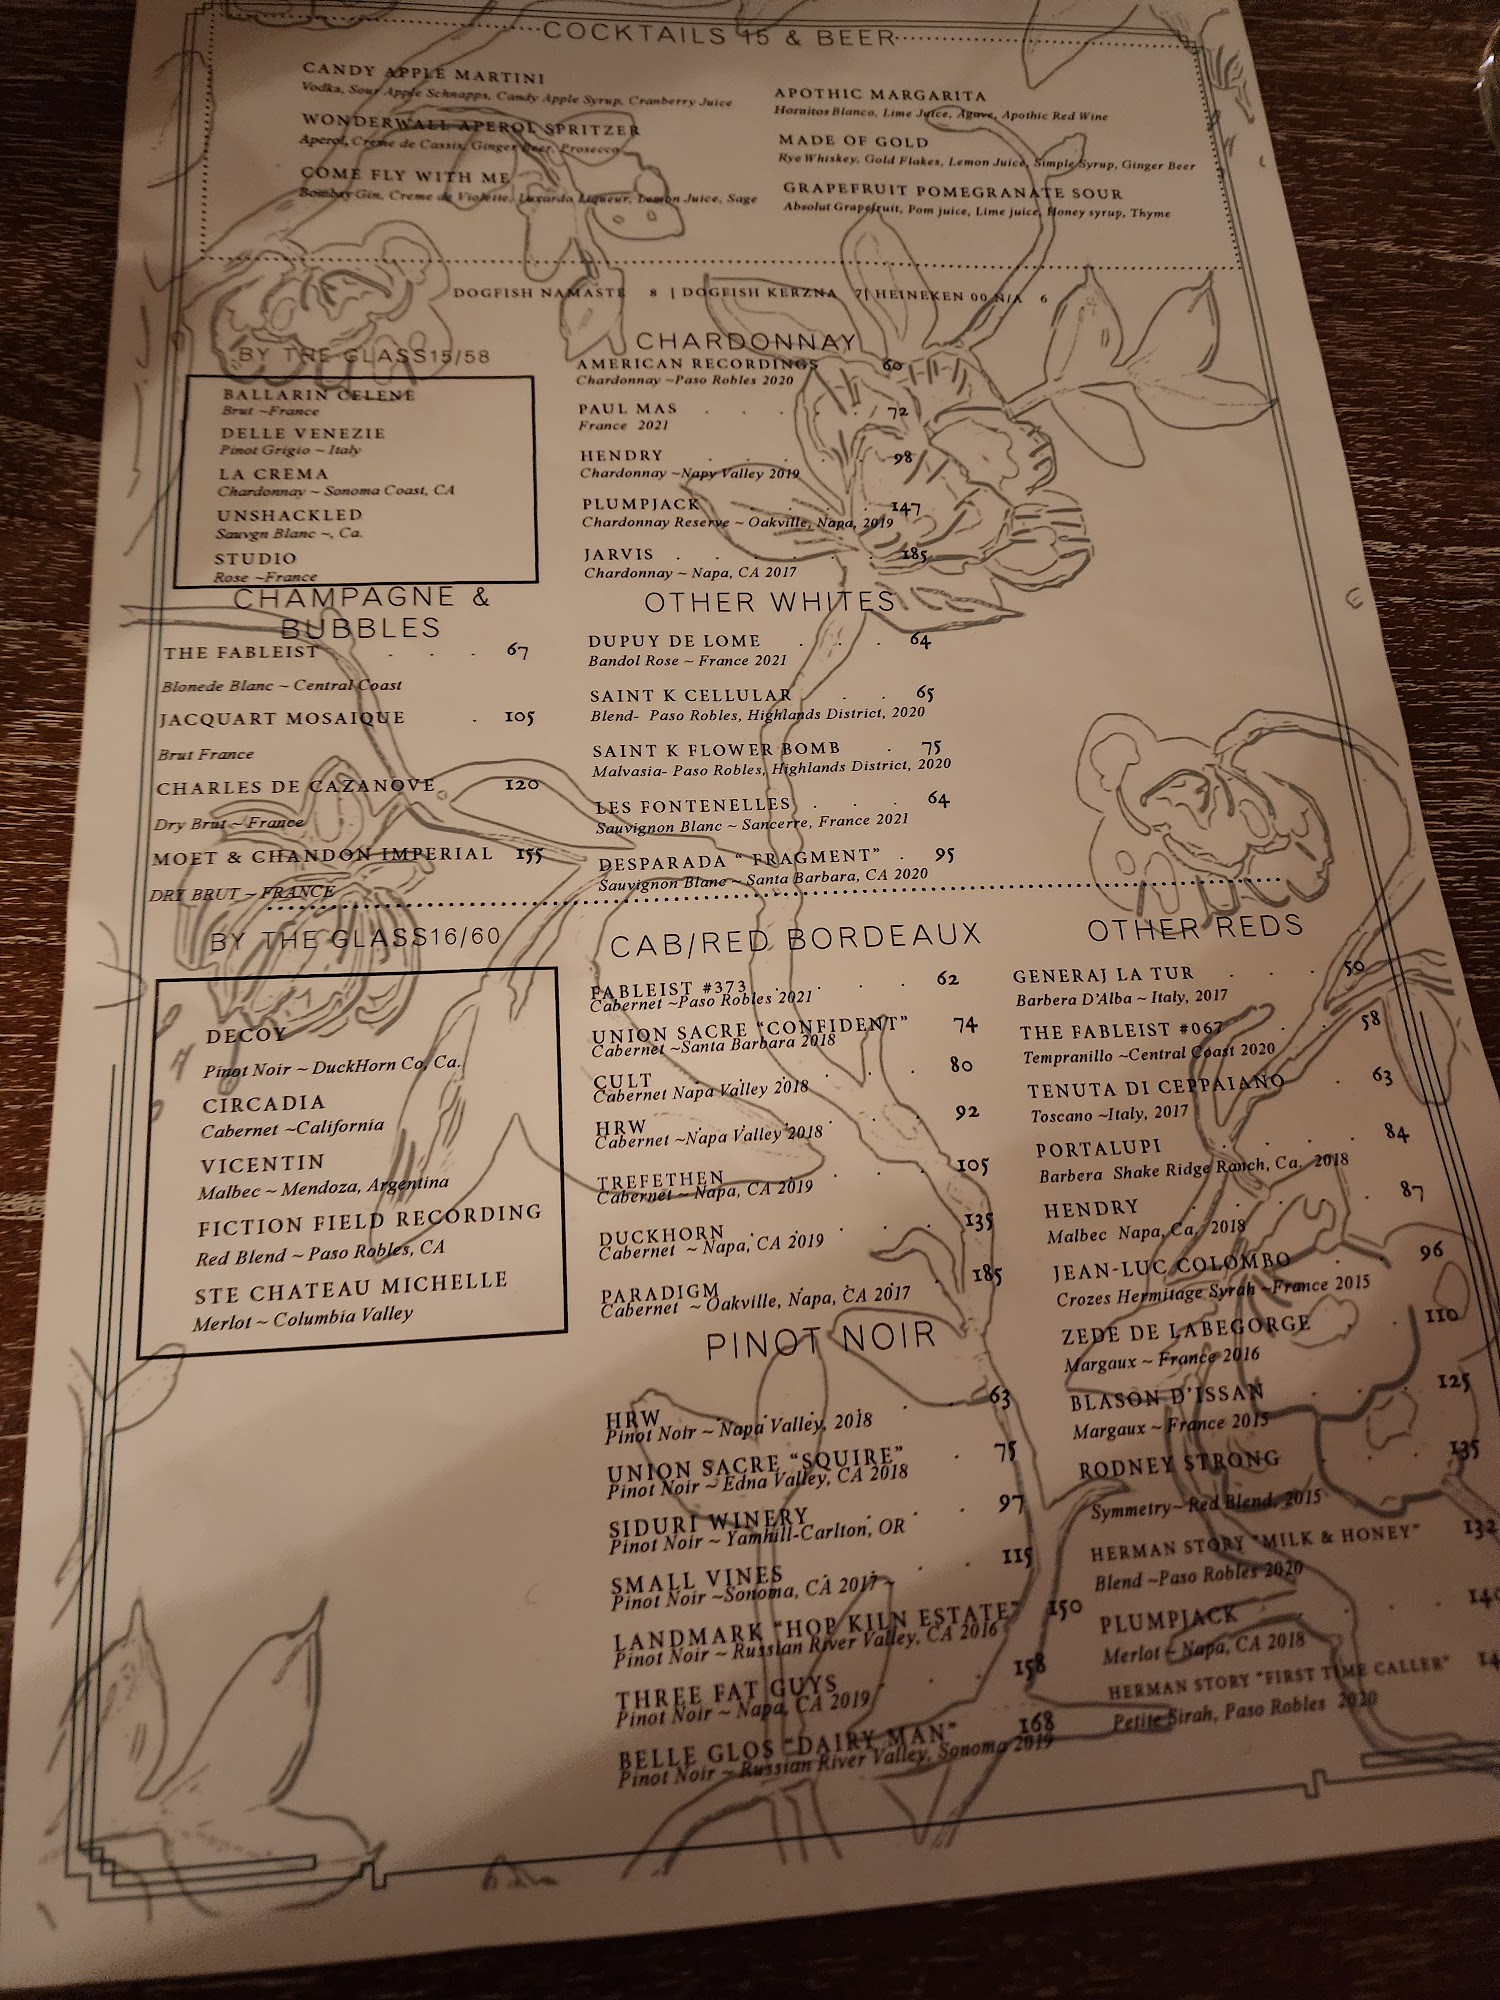 COCKTAILS 15 & BEER
CANDY APPLE MARTINI
Vodka, Sour Apple Schnapps, Candy Apple Syrup, Cranberry Juice
WONDERWALL APEROL SPRITZER
Aperol, Creme de Cassis, Ginger Beer, Prosecco
COME FLY WITH ME
Bombay Gin, Creme de Violette, Luxardo Liqueur, Lemon Juice, Sage
APOTHIC MARGARITA
Hornitos Blanco, Lime Juice, Agave, Apothic Red Wine
MADE OF GOLD
Rye Whiskey, Gold Flakes, Lemon Juice, Simple Syrup, Ginger Beer
GRAPEFRUIT POMEGRANATE SOUR
Absolut Grapefruit, Pom juice, Lime juice, Honey syrup, Thyme
DOGFISH NAMASTE 8 | DOGFISH KERZNA 7| HEINEKEN 00 N/A 6
BY THE GLASS15/58
BALLARIN CELENE
Brut ~France
DELLE VENEZIE
Pinot Grigio ~ Italy
LA CREMA
Chardonnay ~ Sonoma Coast, CA
UNSHACKLED
Sauvgn Blanc ~, Ca.
STUDIO
Rose ~France
CHAMPAGNE &
BUBBLES
THE FABLEIST . . . . 67
Blonede Blanc ~ Central Coast
JACQUART MOSAIQUE . 105
Brut France
CHARLES DE CAZANOVE 120
Dry Brut ~ France
MOET & CHANDON IMPERIAL 155
DRY BRUT ~ FRANCE
CHARDONNAY
AMERICAN RECORDINGS 60
Chardonnay ~Paso Robles 2020
PAUL MAS . . . . . 72
France 2021
HENDRY . . . . 98
Chardonnay ~Napy Valley 2019
PLUMPJACK . . . . 147
Chardonnay Reserve ~ Oakville, Napa, 2019
JARVIS . . . . . 185
Chardonnay ~ Napa, CA 2017
OTHER WHITES
DUPUY DE LOME . . . 64
Bandol Rose ~ France 2021
SAINT K CELLULAR . . 65
Blend- Paso Robles, Highlands District, 2020
SAINT K FLOWER BOMB . 75
Malvasia- Paso Robles, Highlands District, 2020
LES FONTENELLES . . . 64
Sauvignon Blanc ~ Sancerre, France 2021
DESPARADA " FRAGMENT" . 95
Sauvignon Blanc ~ Santa Barbara, CA 2020
BY THE GLASS16/60
DECOY
Pinot Noir ~ DuckHorn Co, Ca.
CIRCADIA
Cabernet ~California
VICENTIN
Malbec ~ Mendoza, Argentina
FICTION FIELD RECORDING
Red Blend ~ Paso Robles, CA
STE CHATEAU MICHELLE
Merlot ~ Columbia Valley
CAB/RED BORDEAUX
FABLEIST #373 . . . . 62
Cabernet ~Paso Robles 2021
UNION SACRE "CONFIDENT" 74
Cabernet ~Santa Barbara 2018
CULT . . . . . 80
Cabernet Napa Valley 2018
HRW . . . . . 92
Cabernet ~Napa Valley 2018
TREFETHEN . . . 105
Cabernet ~ Napa, CA 2019
DUCKHORN . . . . 135
Cabernet ~ Napa, CA 2019
PARADIGM . . . . 185
Cabernet ~ Oakville, Napa, CA 2017
PINOT NOIR
HRW . . . . . 63
Pinot Noir ~ Napa Valley, 2018
UNION SACRE "SQUIRE" . 75
Pinot Noir ~ Edna Valley, CA 2018
SIDURI WINERY . . . 97
Pinot Noir ~ Yamhill-Carlton, OR
SMALL VINES . . . . 115
Pinot Noir ~Sonoma, CA 2017 ~
LANDMARK "HOP KILN ESTATE" 150
Pinot Noir ~ Russian River Valley, CA 2016
THREE FAT GUYS . . . 158
Pinot Noir ~ Napa, CA 2019
BELLE GLOS "DAIRY MAN" 168
Pinot Noir ~ Russian River Valley, Sonoma 2019
OTHER REDS
GENERAJ LA TUR . . . 50
Barbera D'Alba ~ Italy, 2017
THE FABLEIST #067 . . . 58
Tempranillo ~Central Coast 2020
TENUTA DI CEPPAIANO . 63
Toscano ~Italy, 2017
PORTALUPI . . . . 84
Barbera Shake Ridge Ranch, Ca. 2018
HENDRY . . . . 87
Malbec Napa, Ca. 2018
JEAN-LUC COLOMBO . 96
Crozes Hermitage Syrah ~France 2015
ZEDE DE LABEGORGE . 110
Margaux ~ France 2016
BLASON D'ISSAN . . . 125
Margaux ~ France 2015
RODNEY STRONG . . . 135
Symmetry~ Red Blend, 2015
HERMAN STORY "MILK & HONEY" 132
Blend ~Paso Robles 2020
PLUMPJACK . . . .
Merlot ~ Napa, CA 2018
HERMAN STORY "FIRST TIME CALLER"
Petite Sirah, Paso Robles 2020